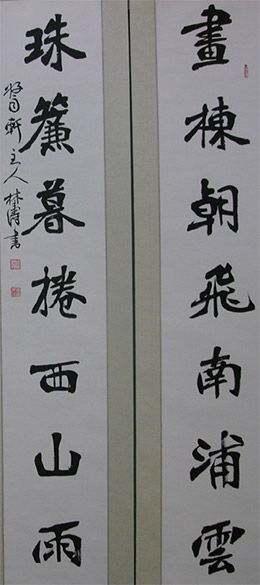 畫棟朝飛南浦雲
珠簾暮捲西山雨
軒主人林濤書